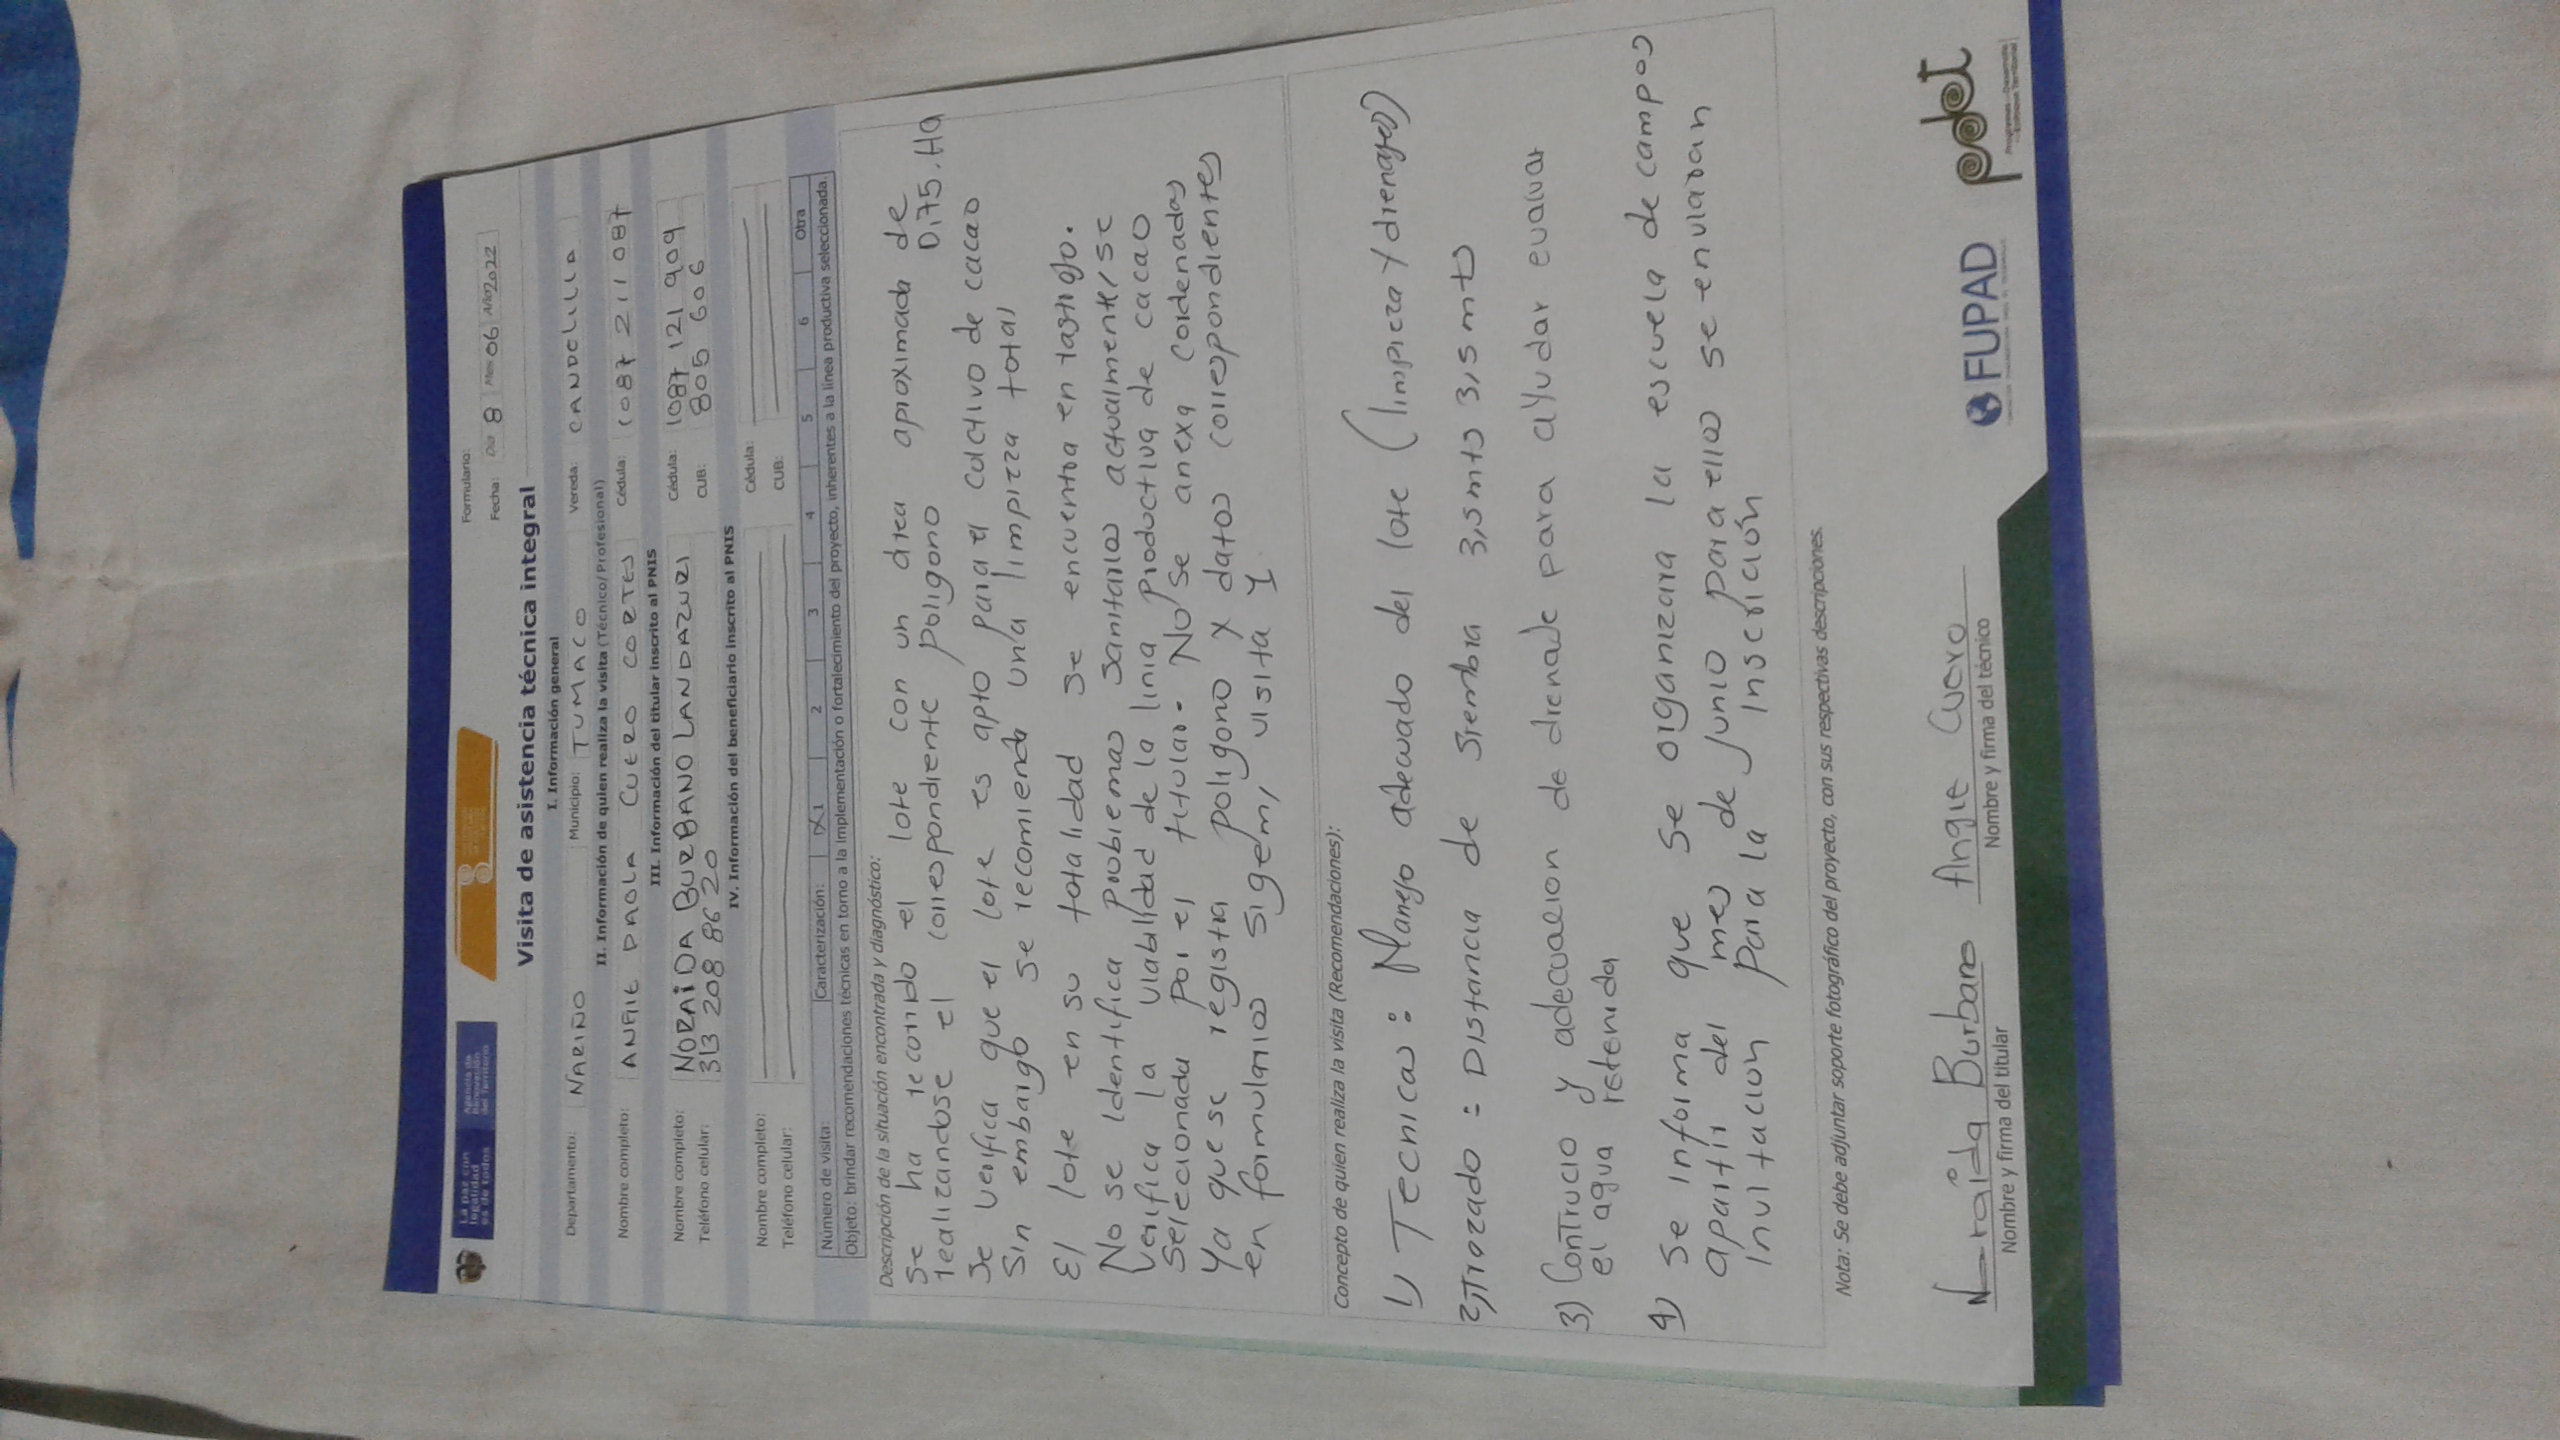 La paz con
legalidad
es de todos
Agencia de
Renovación
del Territorio
Formulario:
Fecha: Día 8 Mes 06 Año 2022
Visita de asistencia técnica integral
I. Información general
Departamento: NARIÑO Municipio: TUMACO Vereda: CANDELILLA
II. Información de quien realiza la visita (Técnico/Profesional)
Nombre completo: ANGIE PAOLA CUERO CORTES Cédula: 1087 211 087
III. Información del titular inscrito al PNIS
Nombre completo: NORAIDA BURBANO LANDAZURI Cédula: 1087 121 909
Teléfono celular: 313 208 86 20 CUB: 805 606
IV. Información del beneficiario inscrito al PNIS
Nombre completo: Cédula:
Teléfono celular: CUB:
Número de visita: Caracterización: X 1 2 3 4 5 6 Otra
Objeto: brindar recomendaciones técnicas en torno a la implementación o fortalecimiento del proyecto, inherentes a la línea productiva seleccionada.
Descripción de la situación encontrada y diagnóstico:
Se ha recorrido el lote con un área aproximada de
realizandose el correspondiente Poligono 0,75.Ha
Se verifica que el lote es apto para el cultivo de cacao
Sin embargo se recomienda una limpieza total
El lote en su totalidad se encuentra en rastrojo.
No se identifica problemas sanitarios actualmente/se
verifica la viabilidad de la linia Productiva de cacao
Seleccionada por el titular. No se anexa cordenadas
Ya que se registra poligono y datos correspondientes
en formularios sigem, visita 1.
Concepto de quien realiza la visita (Recomendaciones):
1) Tecnicas: Manejo adecuado del lote (limpieza y drenajes)
2) Trazado = Distancia de Siembra 3,5 mts 3,5 mts
3) Contrucio y adecuacion de drenade para ayudar evacuar
el agua retenida
4) Se informa que se organizara la escuela de campos
apartir del mes de Junio para ellos se enviaran
Invitacion para la Inscrición
Nota: Se debe adjuntar soporte fotográfico del proyecto, con sus respectivas descripciones.
Noraida Burbano Angie Cuero
Nombre y firma del titular Nombre y firma del técnico
FUPAD
pdet